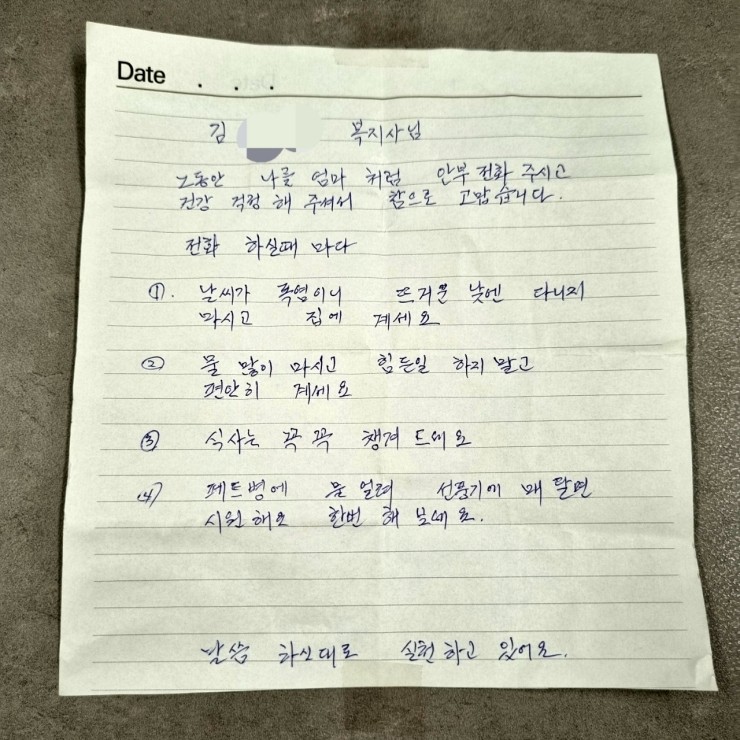 Date . . .
김 복지사님
그동안 나를 엄마 처럼 안부 전화 주시고
건강 걱정 해 주셔서 참으로 고맙습니다.
전화 하실때 마다
①. 날씨가 폭염이니 뜨거운 낮엔 다니지
마시고 집에 계세요
② 물 많이 마시고 힘든일 하지 말고
편안히 계세요
③ 식사는 꼭 꼭 챙겨 드세요
④ 페트병에 물 얼려 선풍기에 매 달면
시원 해요 한번 해 보세요.
말씀 하신대로 실천하고 있어요.